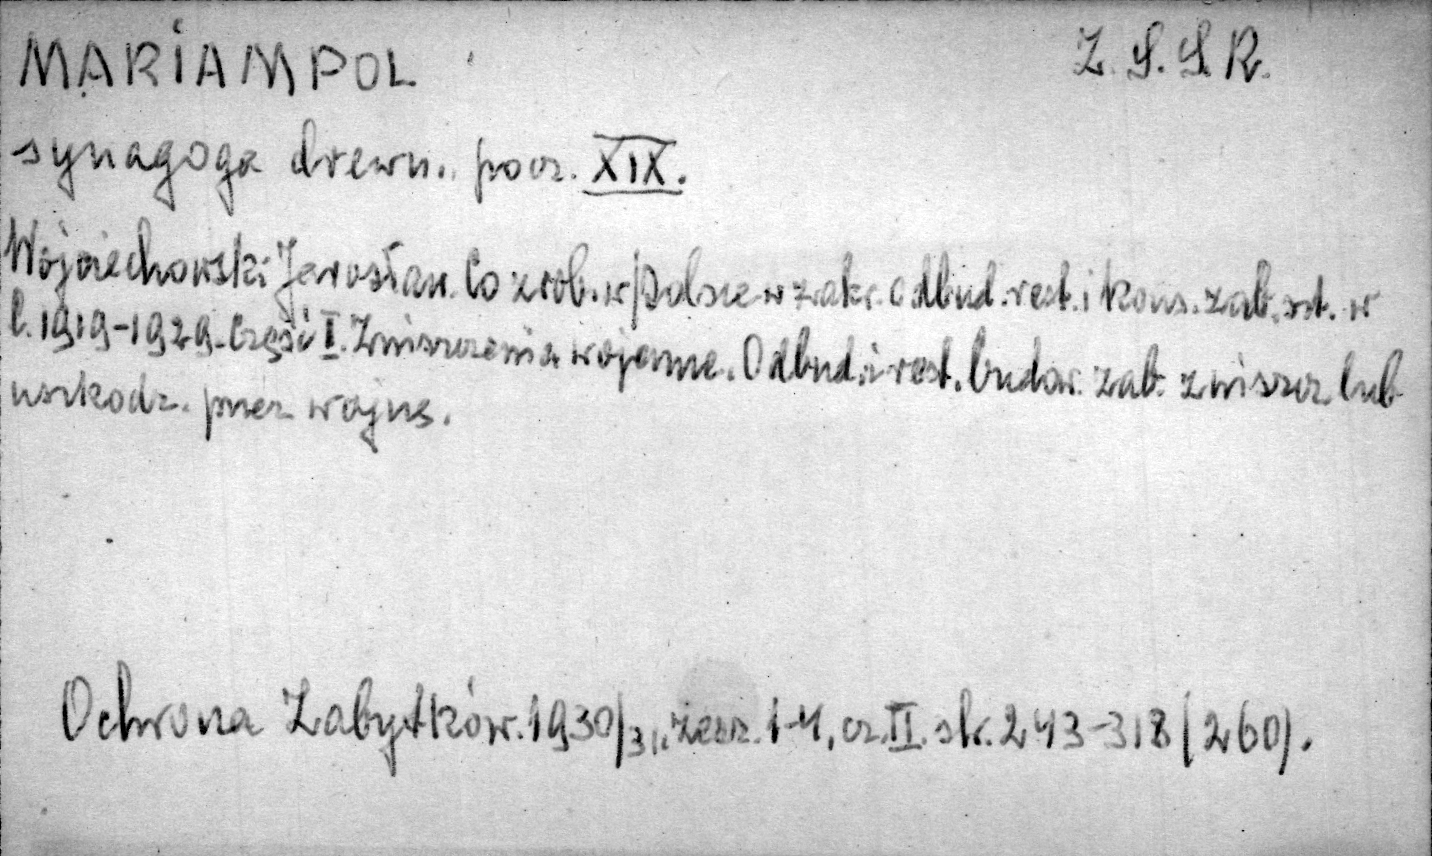 MARIAMPOL Z.S.S.R.
synagoga drewn. pocz. XIX.
Wojciechowski Jarosław. Co zrob. w Polsce w zakr. odbud. rest. i kons. zab. szt. w
l. 1919-1929. Część I. Zniszczenia wojenne. Odbud. i rest. budow. zab. zniszcz. lub
uszkodz. przez wojnę.
Ochrona Zabytków. 1930/31. zesz. 1-4, cz. II. str. 243-318 (260).